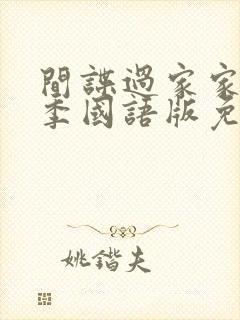 間諜過家家
季國語版免
姚鍇夫